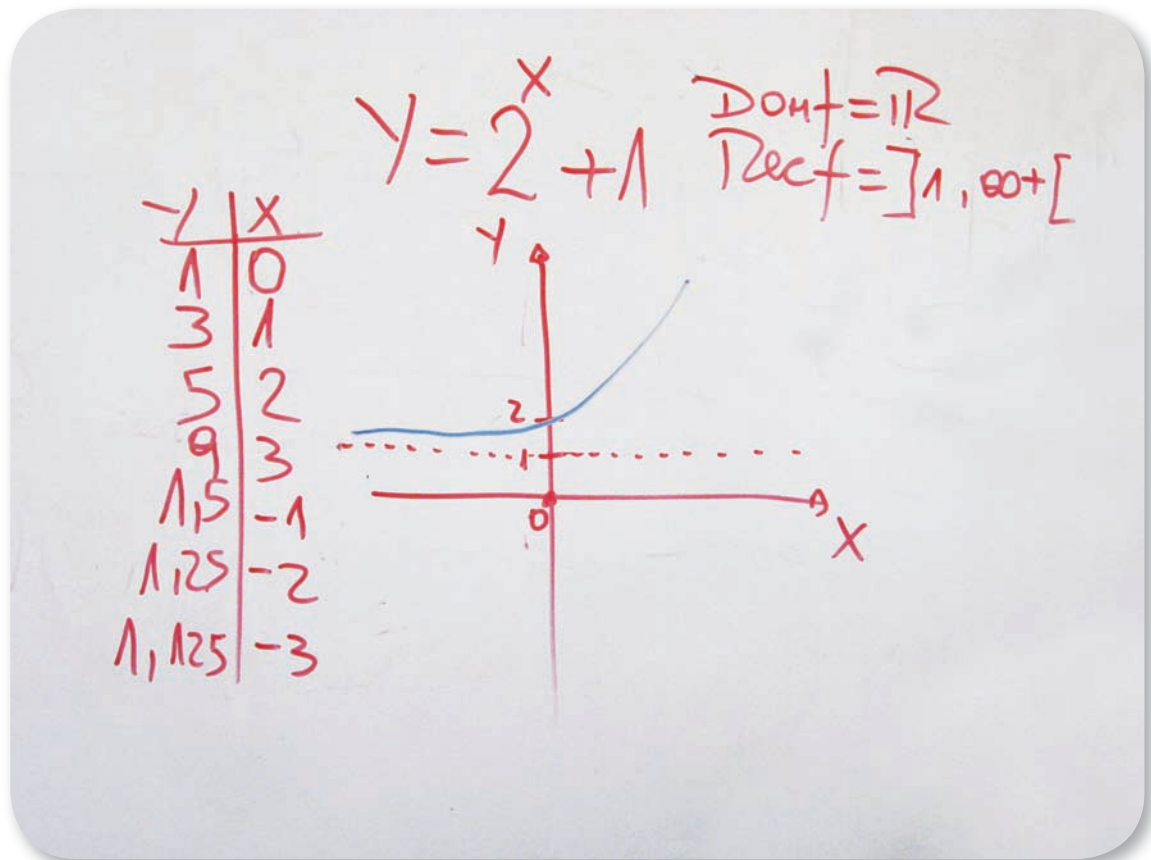 Y = 2^x + 1
Domf = ℝ
Recf = ]1, ∞+[
Y | X
1 | 0
3 | 1
5 | 2
9 | 3
1,5 | -1
1,25 | -2
1,125 | -3
Y
2
1
0
X